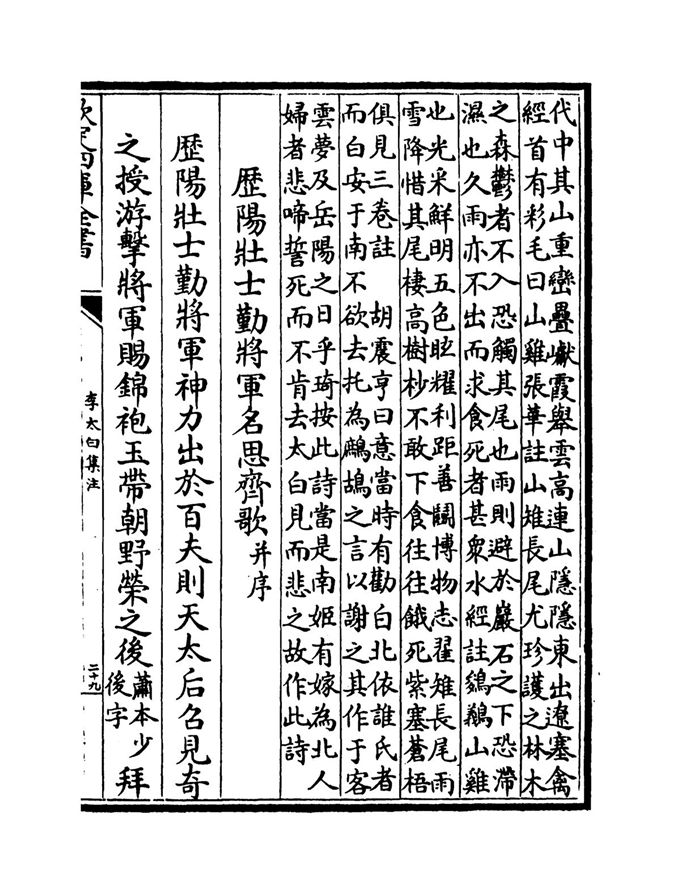 代中其山重巒疊巘霞舉雲高連山隱隱東出遼塞禽
經首有彩毛曰山雞張華註山雉長尾尤珍護之林木
之森鬱者不入恐觸其尾也雨則避於巖石之下恐滯
濕也久雨亦不出而求食死者甚衆水經註鵕鸃山雞
也光采鮮明五色眩耀利距善鬭博物志翟雉長尾雨
雪降惜其尾棲高樹杪不敢下食往往餓死紫塞蒼梧
俱見三卷註　胡震亨曰意當時有勸白北依誰氏者
而白安于南不欲去托為鷓鴣之言以謝之其作于客
雲夢及岳陽之日乎琦按此詩當是南姬有嫁為北人
婦者悲啼誓死而不肯去太白見而悲之故作此詩
歷陽壯士勤將軍名思齊歌并序
歷陽壯士勤將軍神力出於百夫則天太后召見奇
之授游擊將軍賜錦袍玉帶朝野榮之後蕭本少後字拜
欽定四庫全書
李太白集注
二十九